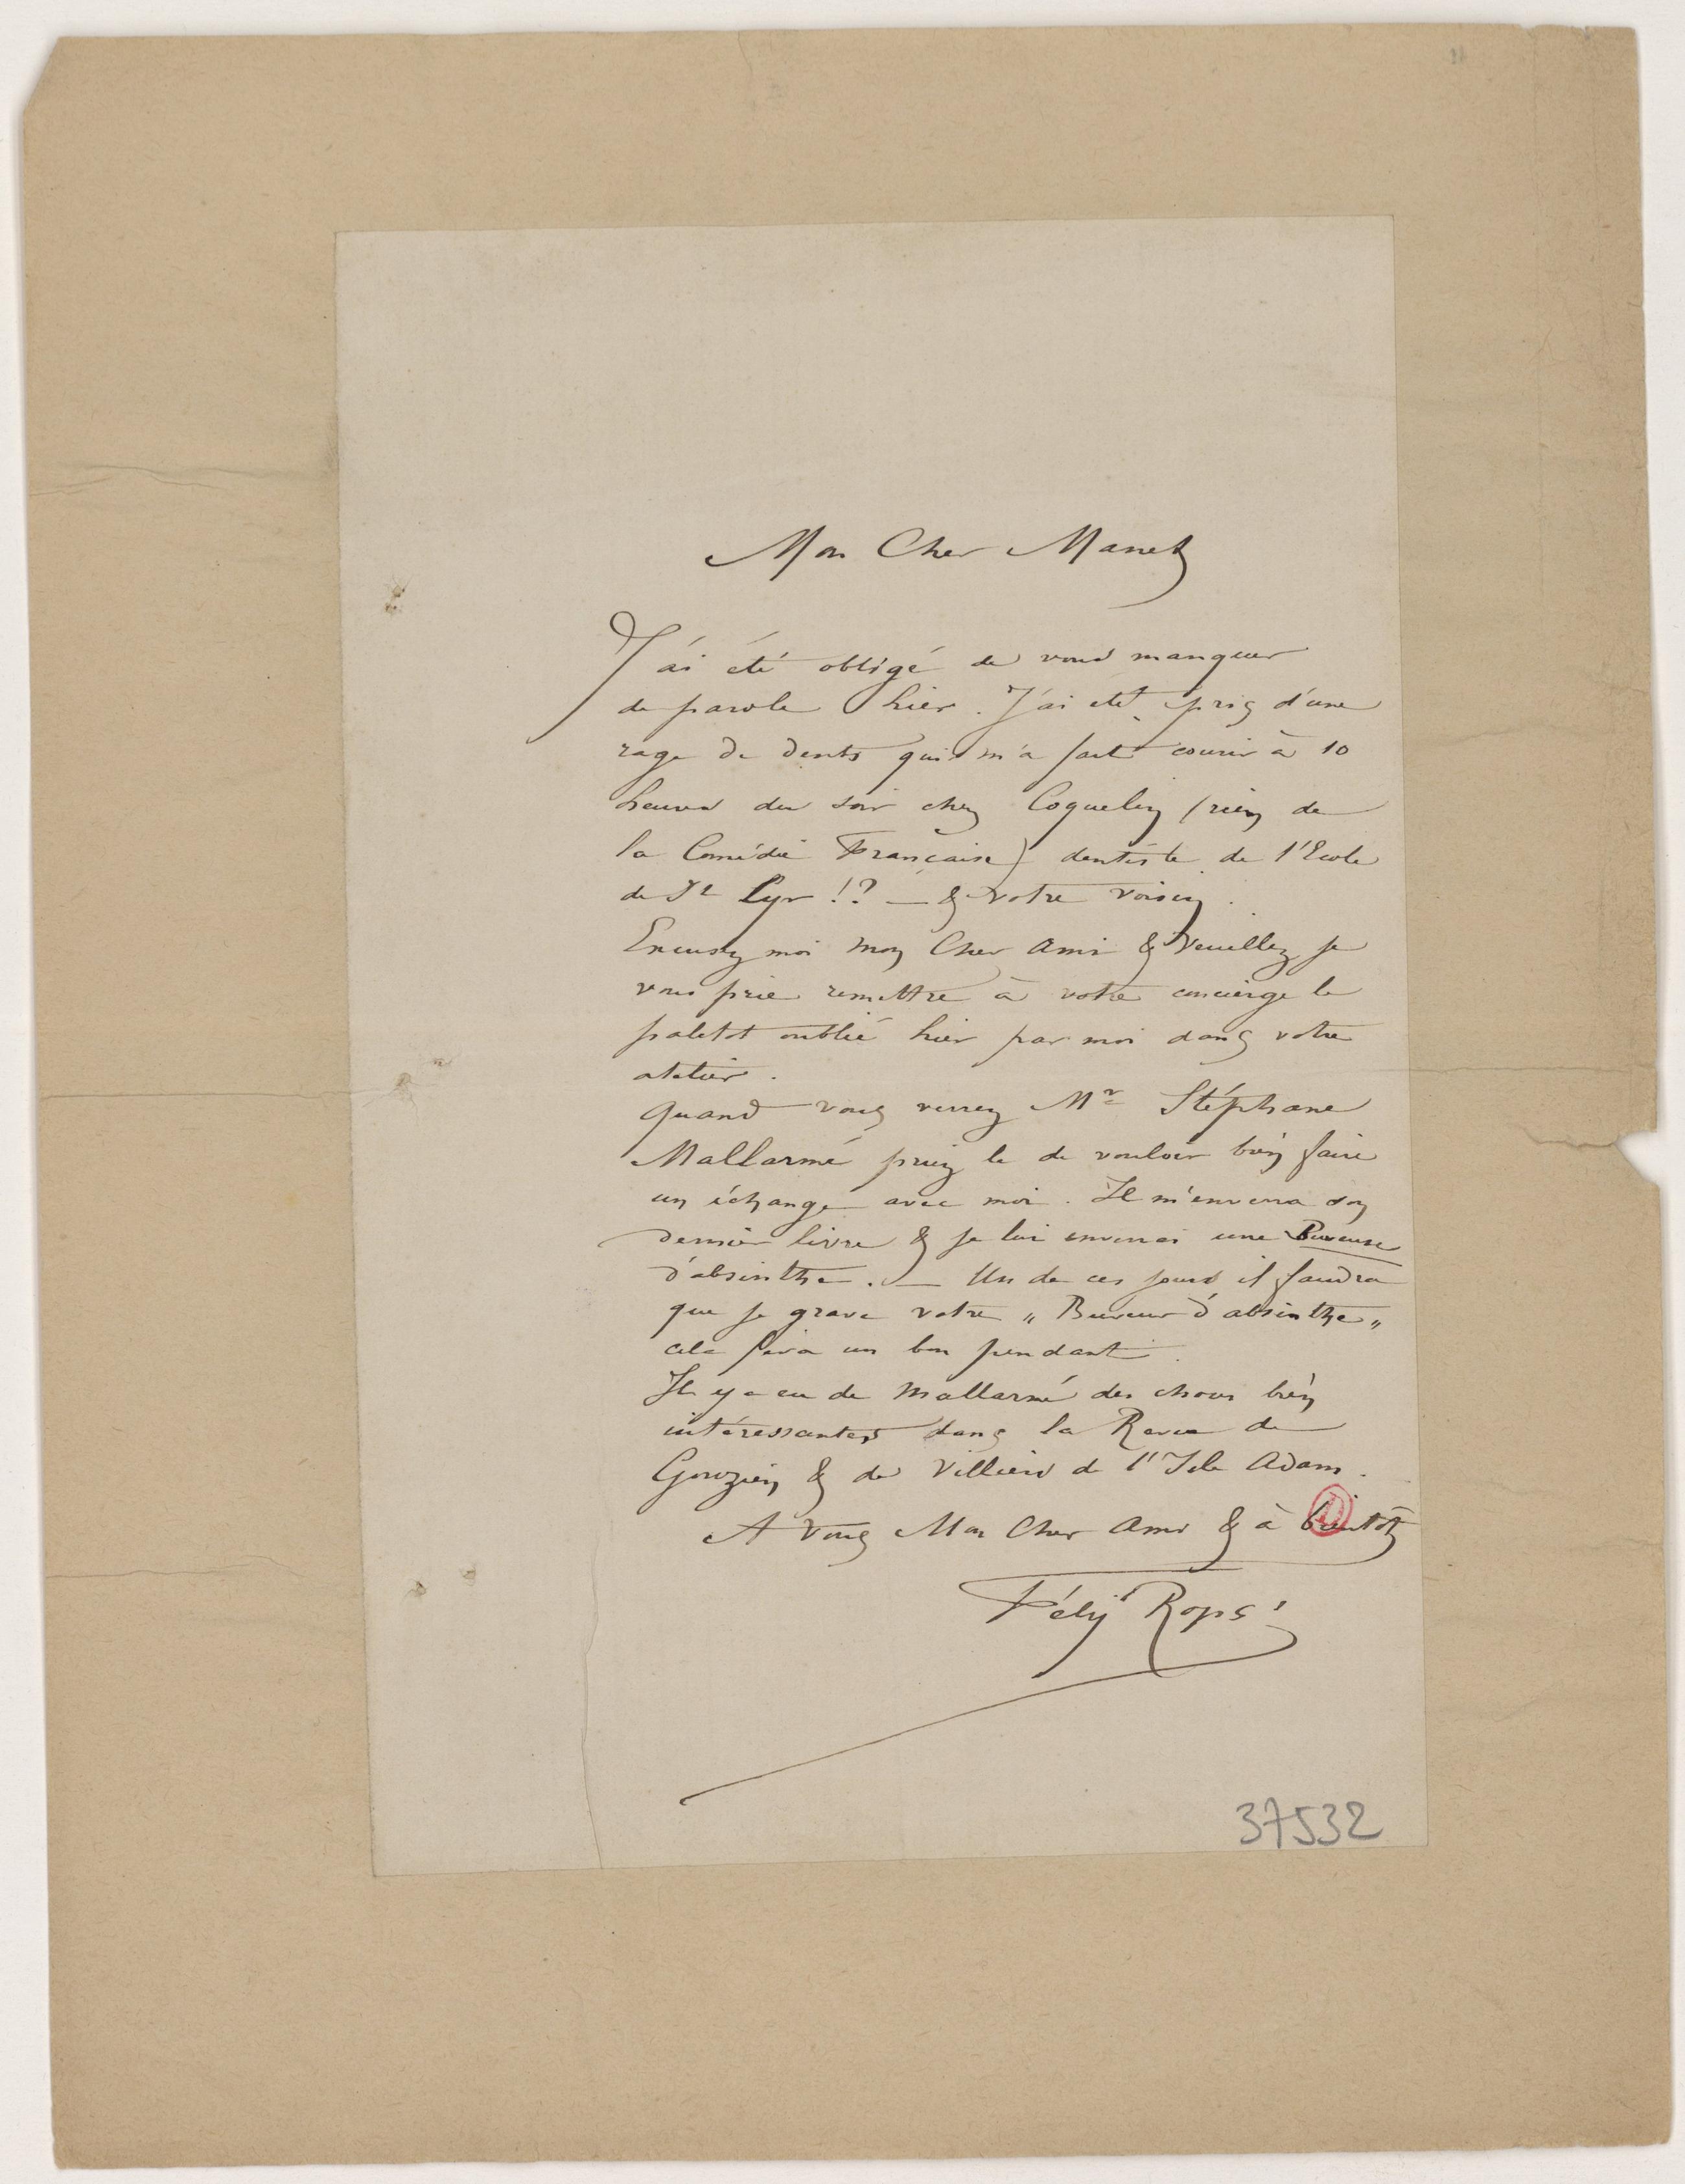 Mon Cher Manet
J'ai été obligé de vous manquer
de parole hier. J'ai été pris d'une
rage de dents qui m'a fait courir à 10
heures du soir chez Coquelin (rien de
la Comédie Française) dentiste de l'Ecole
de St Cyr !? — & votre voisin.
Excusez moi mon Cher Ami & veuillez je
vous prie remettre à votre concierge le
paletot oublié hier par moi dans votre
atelier.
Quand vous verrez Mr Stéphane
Mallarmé priez le de vouloir bien faire
un échange avec moi. Il m'enverra son
dernier livre & je lui enverrai une Buveuse
d'absinthe. — Un de ces jours il faudra
que je grave votre „ Buveur d'absinthe „
cela fera un bon pendant.
Il y a eu de Mallarmé des choses bien
intéressantes dans la Revue de
Gouzien & de Villiers de l'Isle Adam.
A Vous Mon Cher Ami & à bientôt
Fély Rops
37532